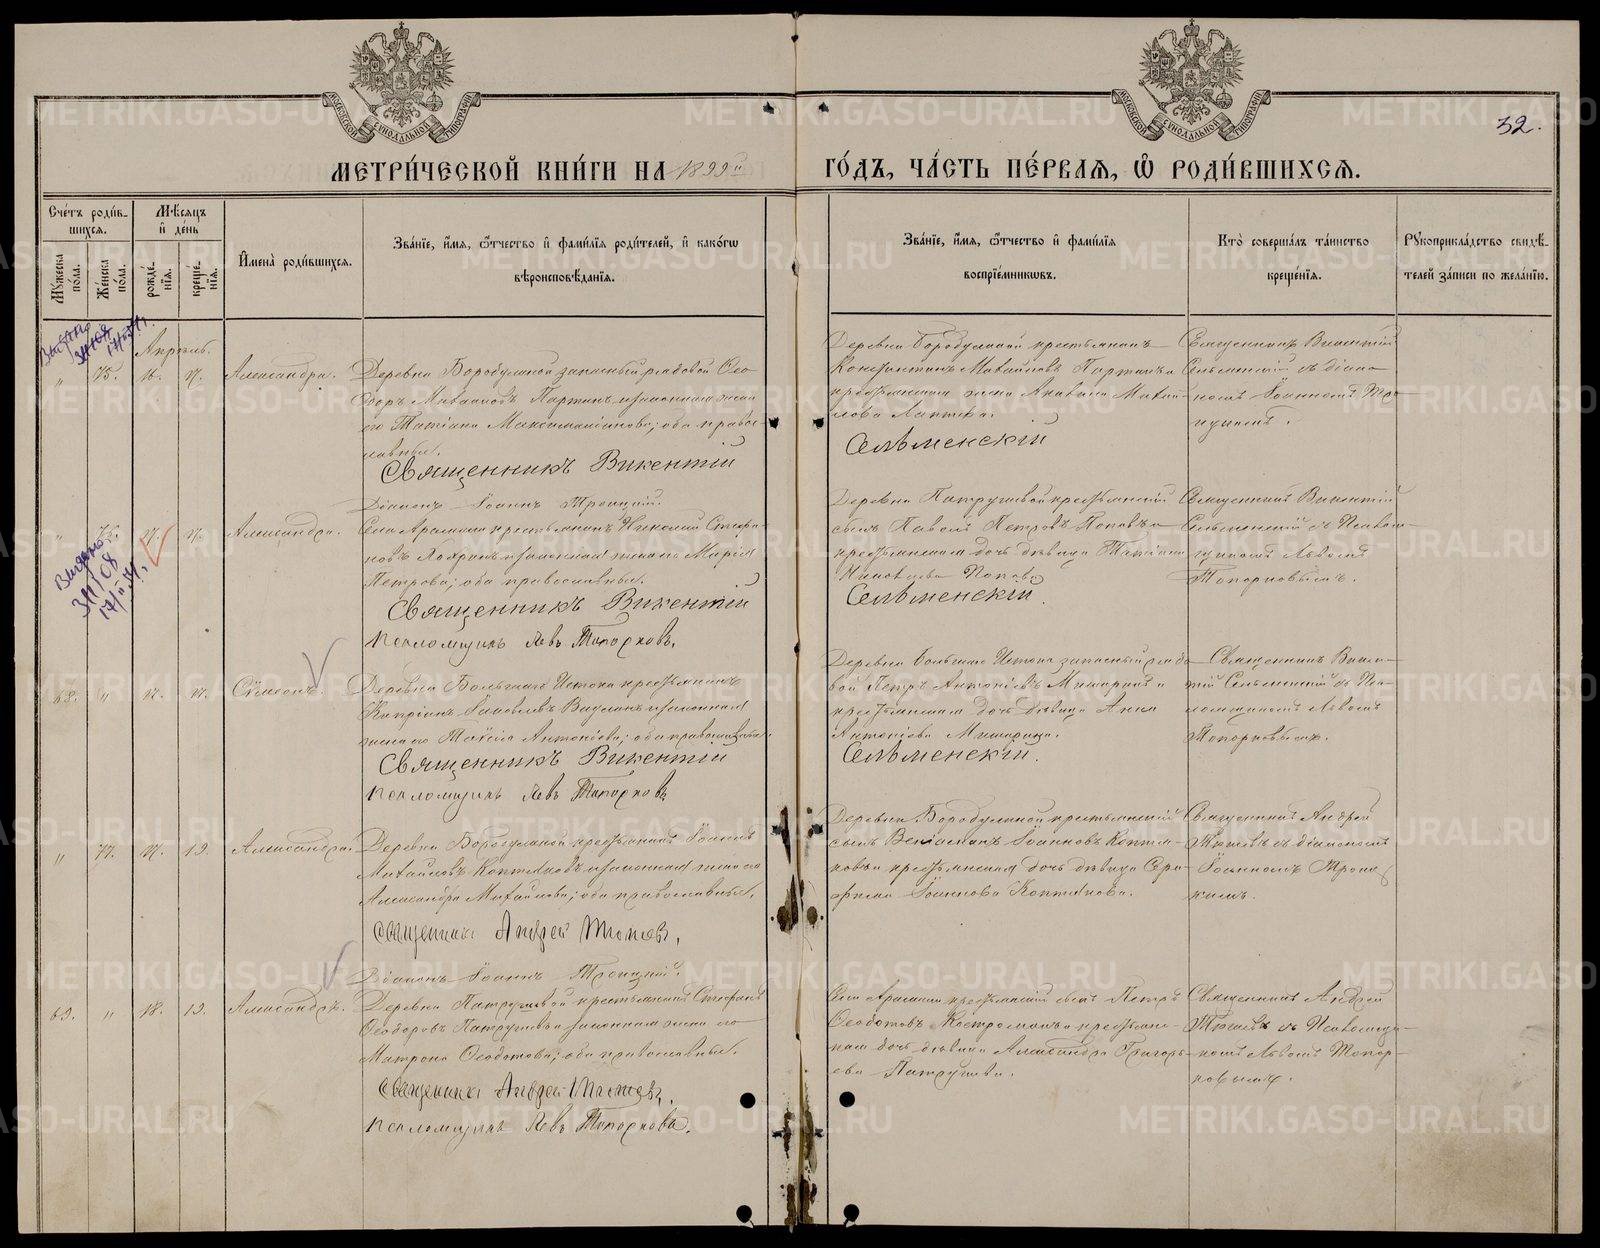 МОСКОВСКОЙ СѴНОДАЛЬНОЙ ТИПОГРАФІИ
МОСКОВСКОЙ СѴНОДАЛЬНОЙ ТИПОГРАФІИ
32.
МЕТРИ́ЧЕСКОЙ КНИ́ГИ НА 1899й ГО́ДЪ, ЧА́СТЬ ПЕ́РВАЯ, Ѡ҆ РОДИ́ВШИХСЯ.
Сче́тъ роди́в-
шихся.
Мѣ́сяцъ
и҆ де́нь
Мꙋ́жеска
по́ла.
Же́нска
по́ла.
рожде́-
нїя.
креще́-
нїя.
И҆мена̀ роди́вшихся.
Зва́нїе, и҆́мя, ѻ҆́тчество и҆ фами́лїя роди́телей, и҆ како́гѡ
вѣроисповѣ́данїя.
Зва́нїе, и҆́мя, ѻ҆́тчество и҆ фами́лїя
воспрїе́мникѡвъ.
Кто̀ соверша́лъ та́инство
креще́нїя.
Рꙋкоприкла́дство свидѣ́-
телей за́писи по жела́нїю.
Апрѣль.
" 75. 16. 17. Александра.
Деревни Бородулиной запасный рядовой Ѳео-
доръ Михаиловъ Партинъ и законная жена
его Татіана Максимиліанова; оба право-
славные.
Священникъ Викентій
Діаконъ Іоаннъ Троицкій.
Деревни Бородулиной крестьянинъ
Константинъ Михайловъ Партинъ и
крестьянская жена
Сельменскій
Священникъ Викентій
Сельменскій съ діако-
номъ Іоанномъ Тро-
ицкимъ.
" 76. 17. 17. Александра.
Выдано
17/II
Села Арамили крестьянинъ Николай Стефа-
новъ и законная жена его Марія
Петрова; оба православные.
Священникъ Викентій
Псаломщикъ Левъ Топорковъ.
Деревни Патрушевой крестьянскій
сынъ Павелъ Петровъ Поповъ и
крестьянская дочь дѣвица Татіана
Попова
Сельменскій.
Священникъ Викентій
Сельменскій съ Псалом-
щикомъ Львомъ
Топорковымъ.
68. " 17. 17. Сѵмеонъ.
Деревни Большаго Истока крестьянинъ
Кипріанъ Іаковлевъ и законная
жена его Таисія Антоніева; оба православные.
Священникъ Викентій
Псаломщикъ Левъ Топорковъ
Деревни Большаго Истока запасный рядо-
вой Петръ Антоніевъ и
крестьянская дочь дѣвица Анна
Антоніева
Сельменскій.
Священникъ Викен-
тій Сельменскій съ Пса-
ломщикомъ Львомъ
Топорковымъ.
" 77. 17. 19. Александра.
Деревни Бородулиной крестьянинъ Іоаннъ
Михайловъ Коптяковъ и законная жена его
Александра Михайлова; оба православные.
Священникъ Андрей
Діаконъ Іоаннъ Троицкій.
Деревни Бородулиной крестьянскій
сынъ Веніаминъ Іоанновъ Коптя-
ковъ и крестьянская дочь дѣвица Сера-
фима Іоаннова Коптякова.
Священникъ Андрей
съ діакономъ
Іоанномъ Троиц-
кимъ.
69. " 18. 19. Александръ.
Деревни Патрушевой крестьянинъ Стефанъ
Ѳеодоровъ Патрушевъ и законная жена его
Матрона Ѳеодотова; оба православные.
Священникъ Андрей
Псаломщикъ Левъ Топорковъ.
Села Арамили крестьянскій сынъ Петръ
Ѳеодотовъ Костроминъ и крестьян-
ская дочь дѣвица Александра Григорь-
ева Патрушева.
Священникъ Андрей
съ Псаломщи-
комъ Львомъ Топор-
ковымъ.
METRIKI.GASO-URAL.RU